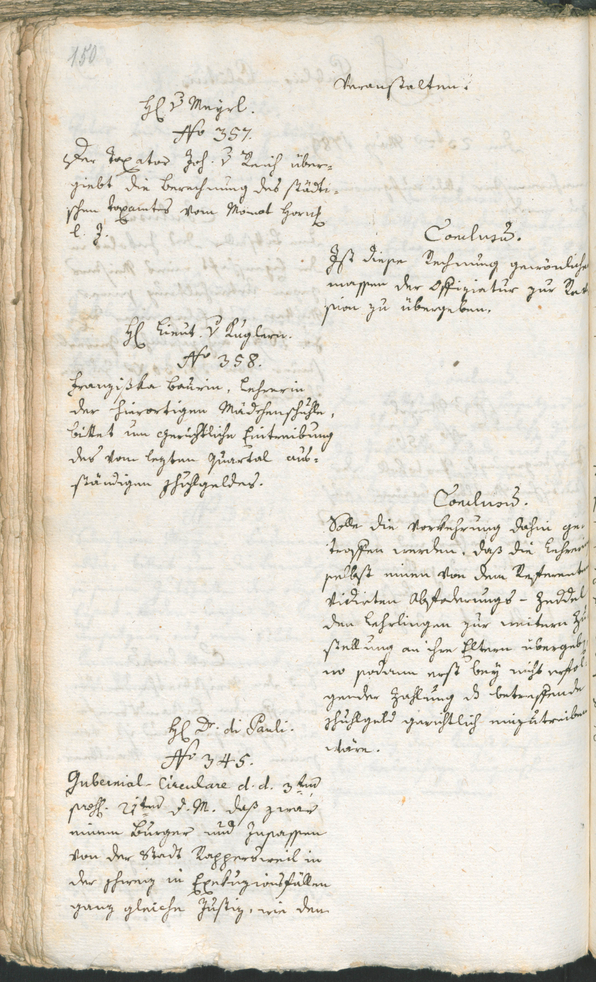 150
Veranstalten.
H v Mayrl.
No 357.
Der Taxator Joh. v Reich über-
giebt die Berechnung des städti-
schen Taxamtes vom Monat
l. J.
Conclusum.
Ist diese Rechnung gewöhnlicher
massen der Offiziatur zur Revi
sion zu übergeben.
H Lieut. v Kuglern.
No 358.
Franziska Baurin, Lehrerin
der hierortigen Mädchenschuhle,
bittet um gerichtliche Eintreibung
des vom lezten Quartal aus-
ständigen Schuhlgeldes.
Conclusum.
Solle die Vorkehrung dahin ge-
troffen werden, daß die Lehrerin
selbst einen von dem Referenten
vidirten Abfoderungs-Zeddel
den Lehrlingen zur weitern Zu
stellung an ihre Eltern übergebe,
wo sodann erst bey nicht erfol
gender Zahlung d betreffende
Schuhlgeld gerichtlich einzutreiben
wäre.
H D. di Pauli.
No 345.
Gubernial-Circulare d. d. 3ten
21ten d. M. daß zwar
einem Bürger und Insassen
von der Stadt Rappersweil in
der Schweiz in Exekuzionsfällen
ganz gleiche Justiz, wie den